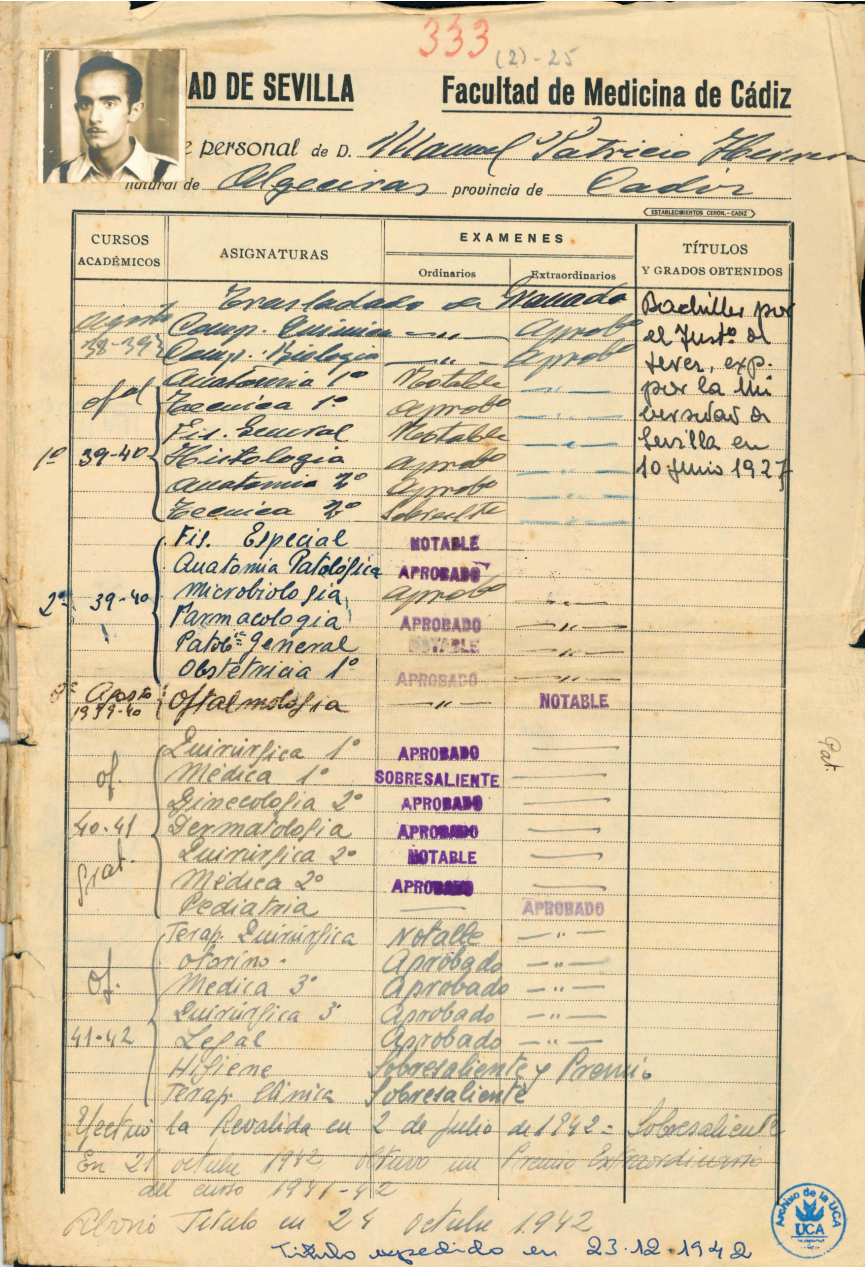 333 (2)-25
DAD DE SEVILLA Facultad de Medicina de Cádiz
e personal de D. Manuel Patricio Herrera
natural de Algeciras provincia de Cadiz
ESTABLECIMIENTOS CERON.-CADIZ
CURSOS ACADÉMICOS ASIGNATURAS EXAMENES TÍTULOS Y GRADOS OBTENIDOS
Ordinarios Extraordinarios
Trasladado de Granada
Agosto Comp. Quimica —"— Aprobº
38-39 Comp. Biologia —"— Aprobº
Bachiller por
el Instº de
Jerez, exp.
por la Uni
versidad de
Sevilla en
10 Junio 1927
Anatomia 1º Notable —"—
Ofal Tecnica 1º Aprobº —"—
Fis. General Notable —"—
1º 39-40 Histologia Aprobº —"—
Anatomia 2º Aprobº —"—
Tecnica 2º Sobrelte —"—
Fis. Especial NOTABLE
Anatomia Patológica APROBADO
2º 39-40 Microbiologia Aprobº —"—
Farmacologia APROBADO —"—
Patolª General NOTABLE —"—
Obstetricia 1º APROBADO
Agosto 1939-40 Oftalmologia —"— NOTABLE
Quirúrgica 1º APROBADO —
of. Médica 1º SOBRESALIENTE —
Ginecologia 2º APROBADO —
40-41 Dermatologia APROBADO —
Quirúrgica 2º NOTABLE —
Grat. Médica 2º APROBADO —
Pediatria — APROBADO
Pat.
Terap. Quirúrgica Notable —"—
Otorino. Aprobado —"—
Of. Medica 3º Aprobado —"—
Quirúrgica 3º Aprobado —"—
41-42 Legal Aprobado —"—
Higiene Sobresaliente y Premio
Terap. Clinica Sobresaliente
Efectuó la Revalida en 2 de Julio de 1942 = Sobresaliente
En 21 octubre 1942 obtuvo un Premio Extraordinario
del curso 1941-42
Abonó Titulo en 24 octubre 1.942
Titulo expedido en 23.12.1942
Archivo de la UCA
UCA